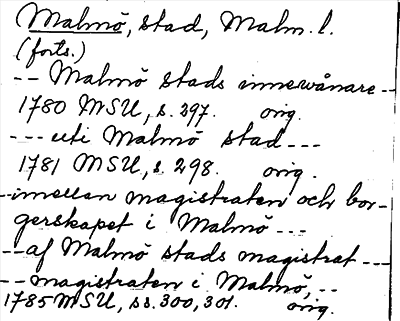 Malmö, stad, Malm. l.
(forts.)
-- Malmö stads innewånare --
1780 MSU, s. 297. orig.
--- uti Malmö stad ---
1781 MSU, s. 298. orig.
-imellan magistraten och bor-
gerskapet i Malmö ---
-- af Malmö stads magistrat ---
-- magistraten i Malmö, --
1785 MSU, ss. 300, 301. orig.